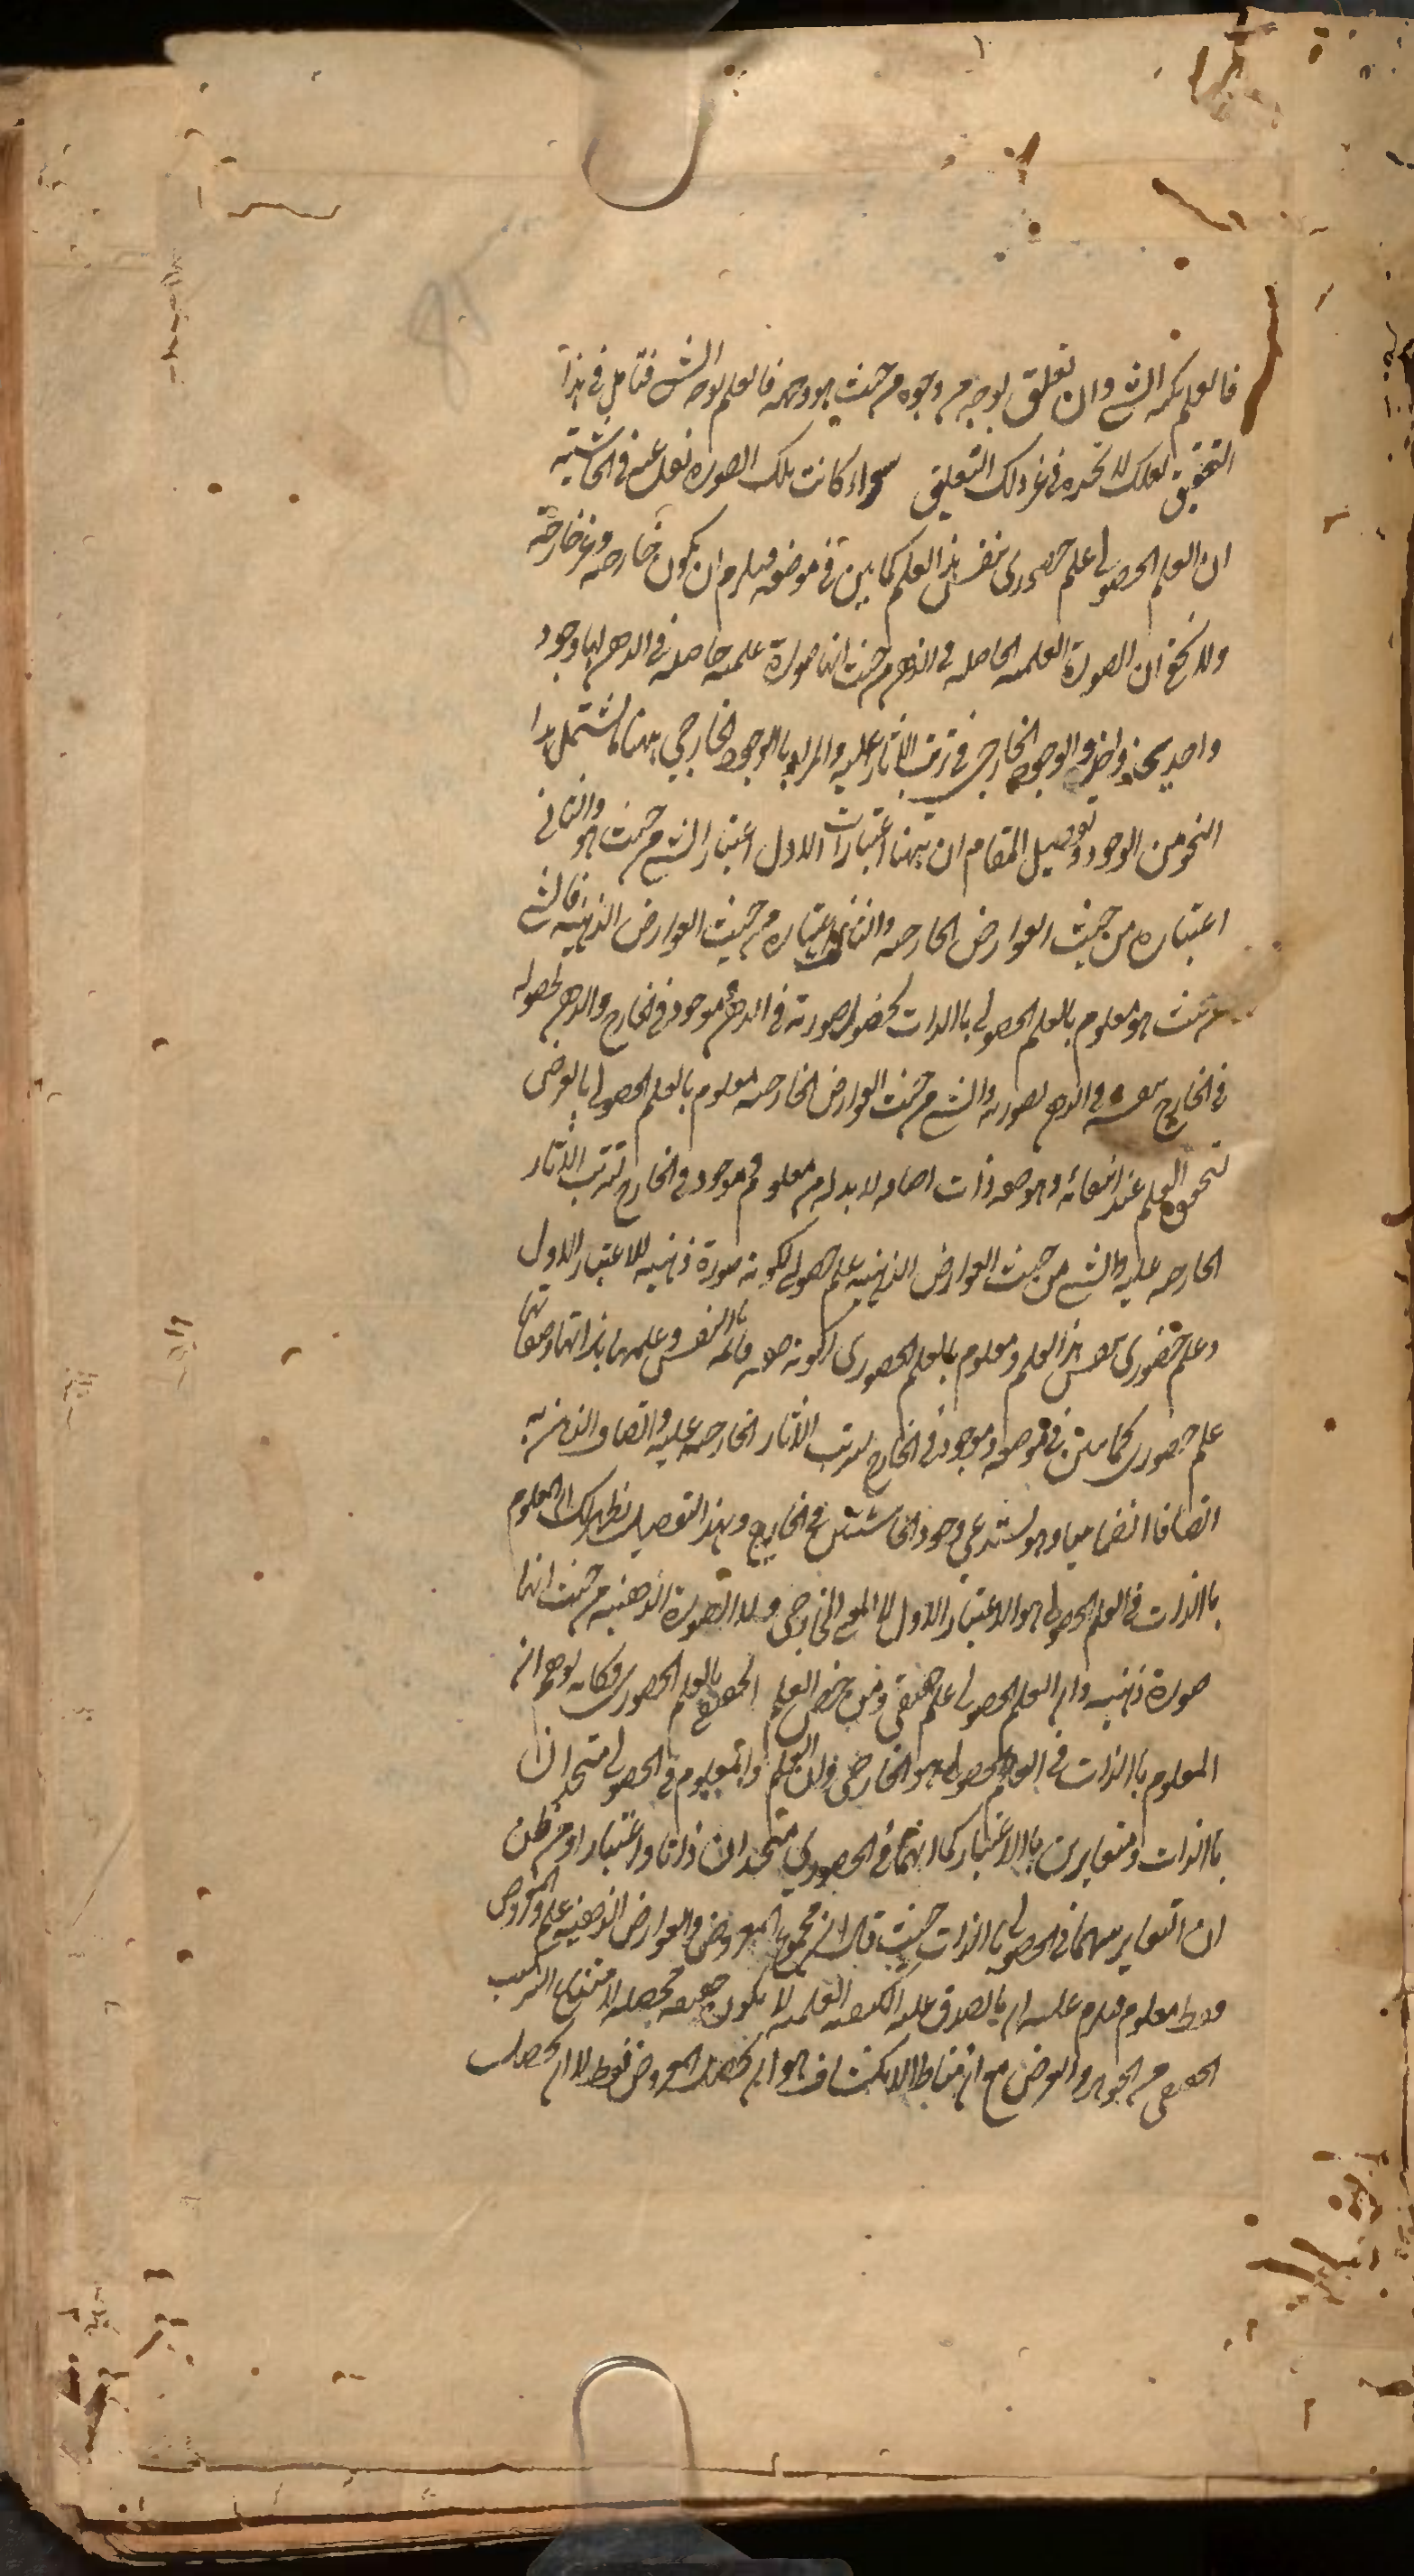 فالعلم بكنه الشي وان تعلق بوجه من وجوه من حيث هو وجه فالعلم بوجه الشي فتامل في هذا
التحقيق لعلك لا تجده في غير ذلك التعليق سواء كانت تلك الصورة نقل عنه في الحاشية
ان العلم الحصولي علم حضوري بنفس هذا العلم كما بين في موضعه فيلزم ان يكون خارجه وغير خارجة
ولا يخفى ان الصورة العلمية الحاصلة في الذهن من حيث انها صورة علمية حاصلة في الذهن لها وجود
واحد يحذو حذو الوجود الخارجي في ترتب الآثار عليه والمراد بالوجود الخارجي ههنا ما يشتمل هذا
النحو من الوجود وتفصيل المقام ان ههنا اعتبارات الاول اعتبار الشي من حيث هو والثاني
اعتباره من حيث العوارض الخارجه والثالث اعتباره من حيث العوارض الذهنية فالشي
من حيث هو معلوم بالعلم الحصولي باالذات لحضول صورته في الذهن وموجود في الخارج والذهن لحصوله
في الخارج بنفسه وفي الذهن بصورته والشي من حيث العوارض الخارجيه معلوم بالعلم الحصولي بالعرض
لتحقق العلم عند انتفائه وهو صفة ذات اضافه لا بد له من معلوم وموجود في الخارج لترتب الآثار
الخارجه عليه والشي من حيث العوارض الذهنيه علم حصولي لكونه صورة ذهنيه للاعتبار الاول
وعلم حضوري بنفس هذا العلم ومعلوم بالعلم الحضوري لكونه صفه قائمه بالنفس وعلمها بذاتها وصفاتها
علم حضوري كما بين في موضعه وموجود في الخارج لترتب الآثار الخارجه عليه واتصاف الذهن به
اتصافا انضماميا وهو يستدعي وجود الحاشيتين في الخارج وبهذا التفصيل يظهر لك ان المعلوم
باالذات في العلم الحصولي هو الاعتبار الاول لا المعنى الخارجي ولا الصورة الذهنيه من حيث انها
صورة ذهنيه وان العلم الحصولي علم حقيقي ومن خص العلم الحقيقي بالعلم الحضوري فكانه توهم ان
المعلوم باالذات في العلم الحصولي هو الخارجي وان العلم والمعلوم في الحصولي متحدان
باالذات ومتغايرين باالاعتبار كما انهما في الحضوري متحدان ذاتا واعتبارا ومن ظن
ان التغاير بينهما في الحصولي باالذات حيث قال ان مجموع المعروض والعوارض الذهنيه علم والمعروض
فقط معلوم فيلزم عليه ان ما يصدق عليه الكيفيه العلميه لا يكون حقيقه محصله لامتناع التركيب
الحقيقي من الجوهر والعرض مع ان مناط الانكشاف هو ان يحصل المعروض فقط لا ان يحصل